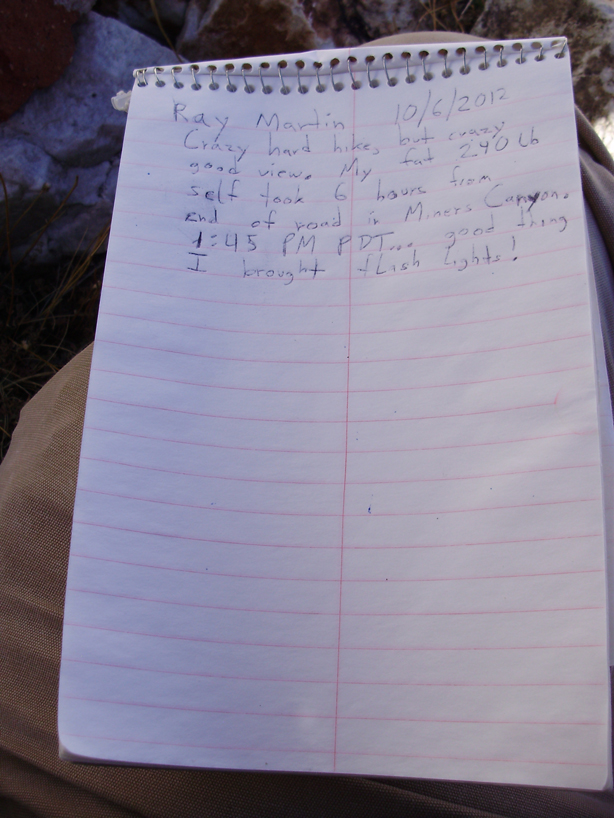 Ray Martin 10/6/2012
Crazy hard hike, but crazy
good view. My fat 240 Lb
self took 6 hours from
end of road in Miners Canyon.
1:45 PM PDT... good thing
I brought flash lights!